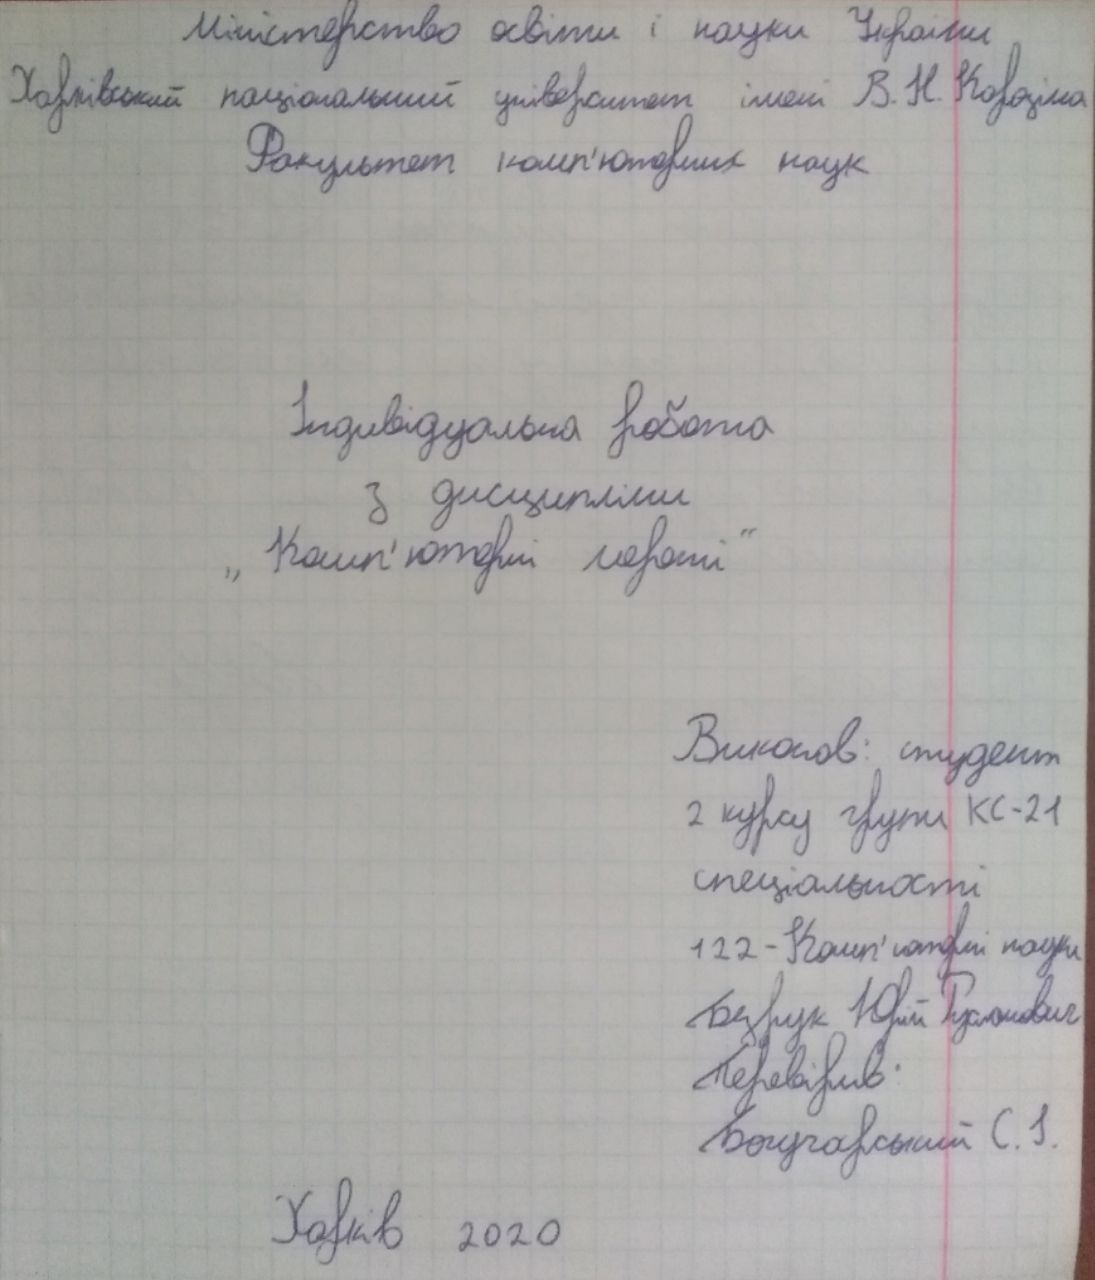 Міністерство освіти і науки України
Харківський національний університет імені В. Н. Каразіна
Факультет комп'ютерних наук
Індивідуальна робота
з дисципліни
„Комп'ютерні мережі"
Виконав: студент
2 курсу групи КС-21
спеціальності
122-Комп'ютерні науки
Безрук Юрій Русланович
Перевірив:
Богучарський С. І.
Харків 2020